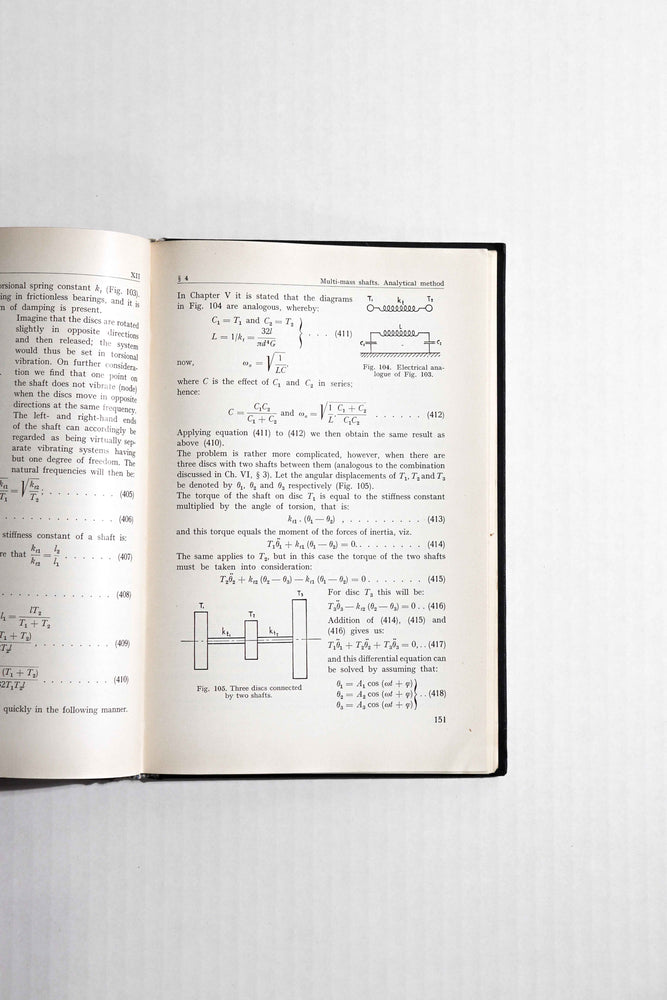 XII
orsional spring constant k, (Fig. 103).
ing in frictionless bearings, and it is
n of damping is present.
Imagine that the discs are rotated
slightly in opposite directions
and then released; the system
would thus be set in torsional
vibration. On further considera-
tion we find that one point on
the shaft does not vibrate (node)
when the discs move in opposite
directions at the same frequency.
The left- and right-hand ends
of the shaft can accordingly be
regarded as being virtually sep-
arate vibrating systems having
but one degree of freedom. The
natural frequencies will then be:
= √(k_t2/T_2) , . . . . . . . . (405)
. . . . . . . . . . . . . . (406)
stiffness constant of a shaft is:
re that k_t1/k_t2 = l_2/l_1 . . . . . . (407)
. . . . . . . . . . . . . (408)
= lT_2/(T_1 + T_2)
. . . . . . . (409)
(T_1 + T_2) . . . . . (410)
quickly in the following manner.
§ 4 Multi-mass shafts. Analytical method
In Chapter V it is stated that the diagrams
in Fig. 104 are analogous, whereby:
C₁ = T₁ and C₂ = T₂
L = 1/kₜ = 32l/πd⁴G } . . . (411)
now, ωₒ = √(1/LC)
T₁ kₜ T₂
L
C₁ C₂
Fig. 104. Electrical ana-
logue of Fig. 103.
where C is the effect of C₁ and C₂ in series;
hence:
C = C₁C₂/(C₁ + C₂) and ωₒ = √(1/L · (C₁ + C₂)/C₁C₂) . . . . . . (412)
Applying equation (411) to (412) we then obtain the same result as
above (410).
The problem is rather more complicated, however, when there are
three discs with two shafts between them (analogous to the combination
discussed in Ch. VI, § 3). Let the angular displacements of T₁, T₂ and T₃
be denoted by θ₁, θ₂ and θ₃ respectively (Fig. 105).
The torque of the shaft on disc T₁ is equal to the stiffness constant
multiplied by the angle of torsion, that is:
kₜ₁ . (θ₁ — θ₂) , . . . . . . . . . (413)
and this torque equals the moment of the forces of inertia, viz.
T₁θ̈₁ + kₜ₁ (θ₁ — θ₂) = 0. . . . . . . . . (414)
The same applies to T₂, but in this case the torque of the two shafts
must be taken into consideration:
T₂θ̈₂ + kₜ₂ (θ₂ — θ₃) — kₜ₁ (θ₁ — θ₂) = 0 . . . . . . . (415)
T₁ T₂ T₃
kₜ₁ kₜ₂
Fig. 105. Three discs connected
by two shafts.
For disc T₃ this will be:
T₃θ̈₃ — kₜ₂ (θ₂ — θ₃) = 0 . . (416)
Addition of (414), (415) and
(416) gives us:
T₁θ̈₁ + T₂θ̈₂ + T₃θ̈₃ = 0, . . (417)
and this differential equation can
be solved by assuming that:
θ₁ = A₁ cos (ωt + φ)
θ₂ = A₂ cos (ωt + φ) } . . (418)
θ₃ = A₃ cos (ωt + φ)
151